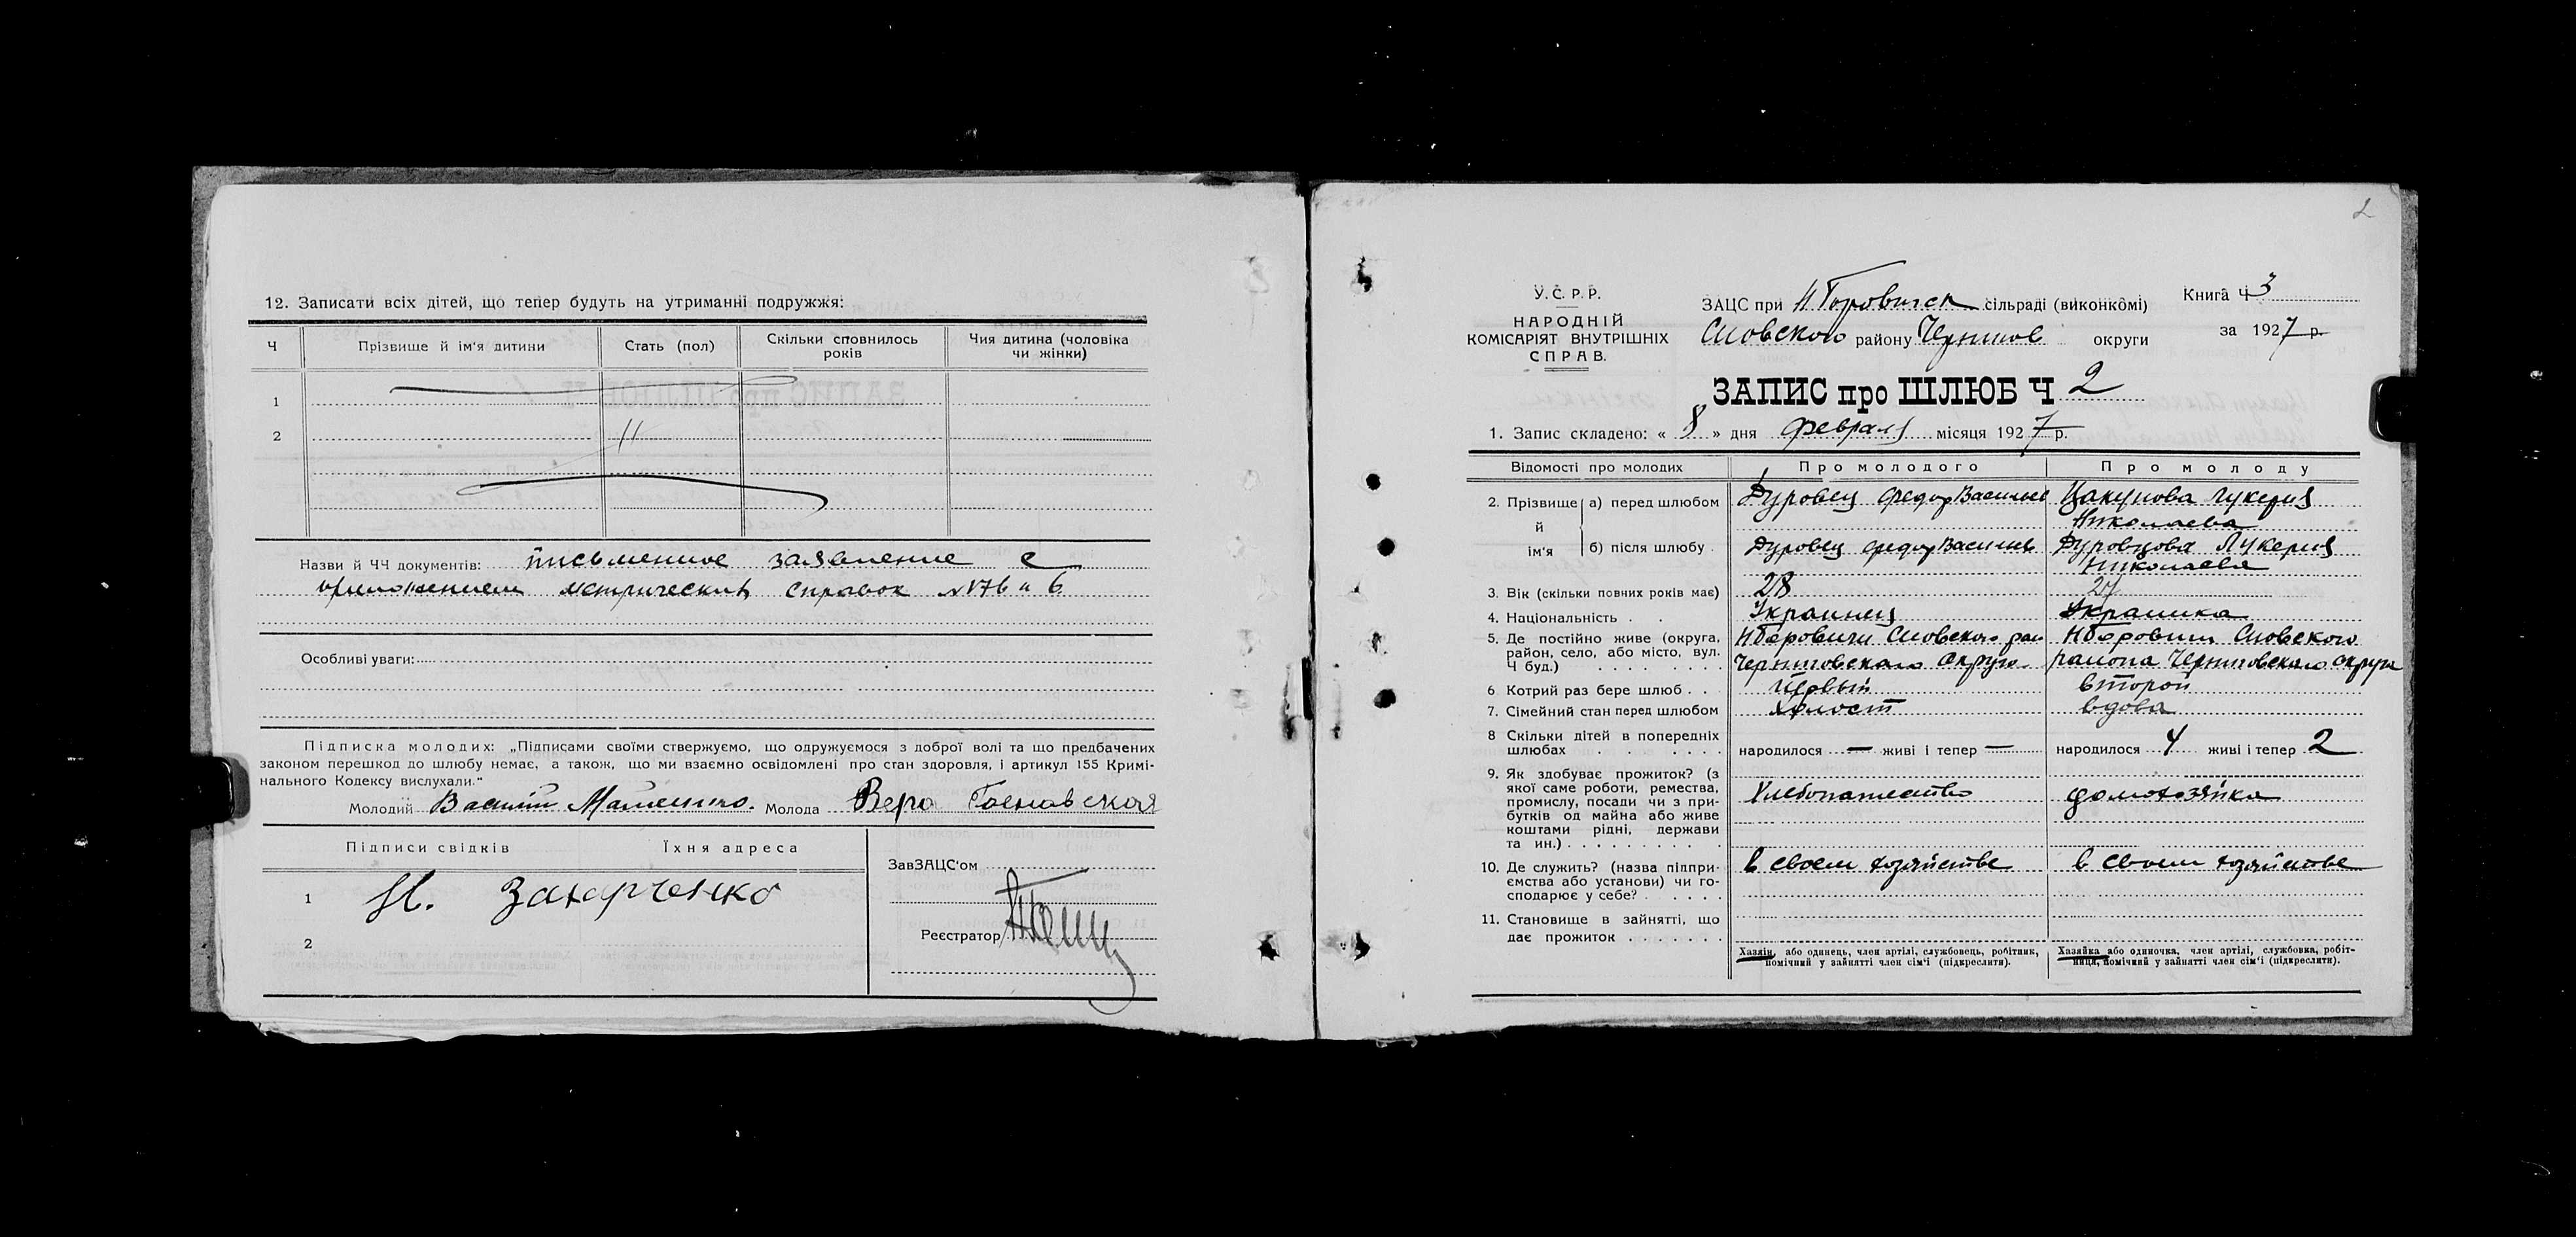 12. Записати всіх дітей, що тепер будуть на утриманні подружжя:
Ч Прізвище й ім'я дитини Стать (пол) Скільки сповнилось років Чия дитина (чоловіка чи жінки)
1
2
Назви й ЧЧ документів: письменное заявление с
приложением метрических справок №№ 76 и 6
Особливі уваги:
Підписка молодих: „Підписами своїми ствержуємо, що одружуємося з доброї волі та що предбачених
законом перешкод до шлюбу немає, а також, що ми взаємно освідомлені про стан здоровля, і артикул 155 Кримі-
нального Кодексу вислухали."
Молодий Василий Молода Вера
Підписи свідків Їхня адреса
1 Н. Захарченко
2
ЗавЗАЦС'ом
Реєстратор
2
У.С.Р.Р.
НАРОДНІЙ
КОМІСАРІЯТ ВНУТРІШНІХ
СПРАВ.
ЗАЦС при сільраді (виконкомі)
Сновского району Чернигов округи
Книга Ч 3
за 1927 р.
ЗАПИС про ШЛЮБ Ч 2
1. Запис складено: « 8 » дня февраля місяця 1927 р.
Відомості про молодих Про молодого Про молоду
2. Прізвище й ім'я
а) перед шлюбом Дуровец Федор Васильев Цакунова Лукерия
Николаева
б) після шлюбу Дуровец Федор Васильев Дуровцова Лукерия
Николаева
3. Вік (скільки повних років має) 28 27
4. Національність Украинец Украинка
5. Де постійно живе (округа, район, село, або місто, вул. Ч буд.) НБоровичи Сновского рай НБоровичи Сновского
Черниговского округа района Черниговского округа
6 Котрий раз бере шлюб первый второй
7. Сімейний стан перед шлюбом холост вдова
8 Скільки дітей в попередніх шлюбах народилося — живі і тепер — народилося 4 живі і тепер 2
9. Як здобуває прожиток? (з
якої саме роботи, ремества,
промислу, посади чи з при-
бутків од майна або живе
коштами рідні, держави
та ин.) Хлебопашество домохозяйка
10. Де служить? (назва піппри-
ємства або установи) чи го-
сподарює у себе? в своем хозяйстве в своем хозяйстве
11. Становище в зайнятті, що
дає прожиток
Хазяїн, або одинець, член артілі, службовець, робітник,
помічний у зайнятті член сім'ї (підкреслити).
Хазяйка або одиночка, член артілі, службовка, робіт-
ниця, помічний у зайнятті член сім'ї (підкреслити).